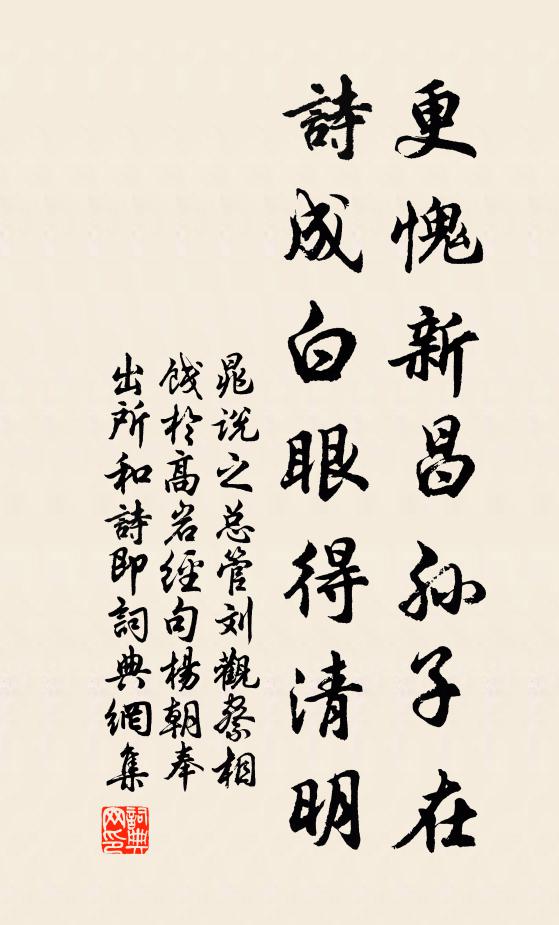 更愧新昌孙子在
詩成白眼得清明
晁说之总管刘觀察相
餞於高岩經句楊朝奉
出所和詩即詞典網集
詞典网印